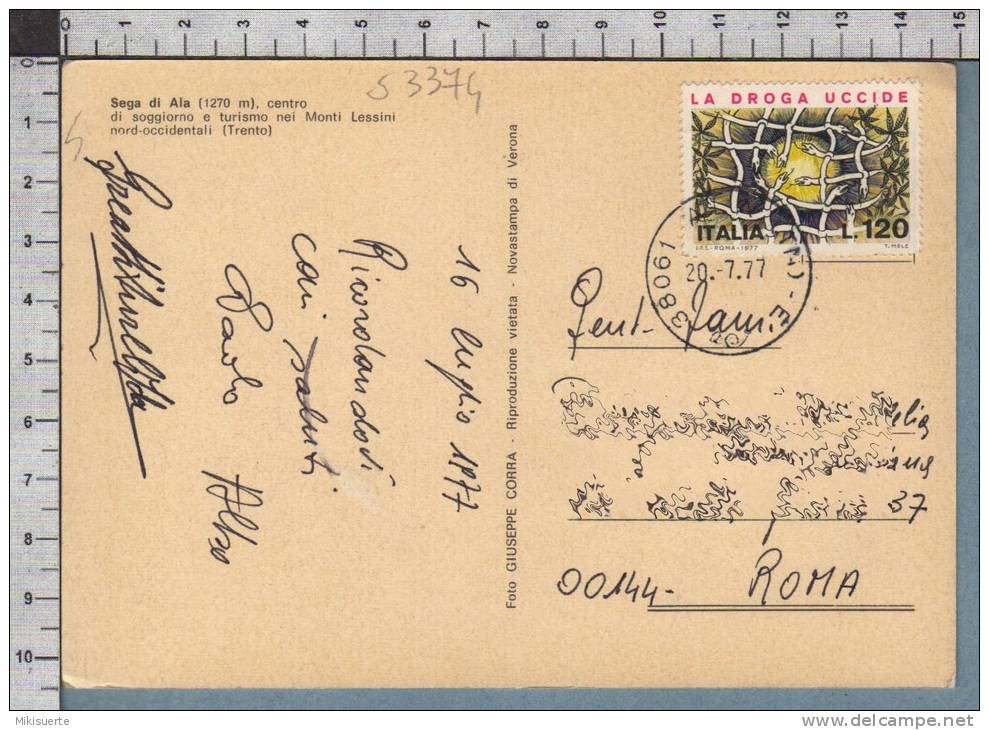 S3374
Sega di Ala (1270 m), centro
di soggiorno e turismo nei Monti Lessini
nord-occidentali (Trento)
16 luglio 1977
Ricordandosi
cari saluti.
Paolo
Foto GIUSEPPE CORRA - Riproduzione vietata - Novastampa di Verona
LA DROGA UCCIDE
ITALIA L.120
I.P.S.-ROMA-1977 T. MELE
38061
20.-7.77
Gent. Fam.
37
00144- ROMA
0 1 2 3 4 5 6 7 8 9 10 11 12 13 14 15
0
1
2
3
4
5
6
7
8
9
10
Mikisuerte
www.delcampe.net